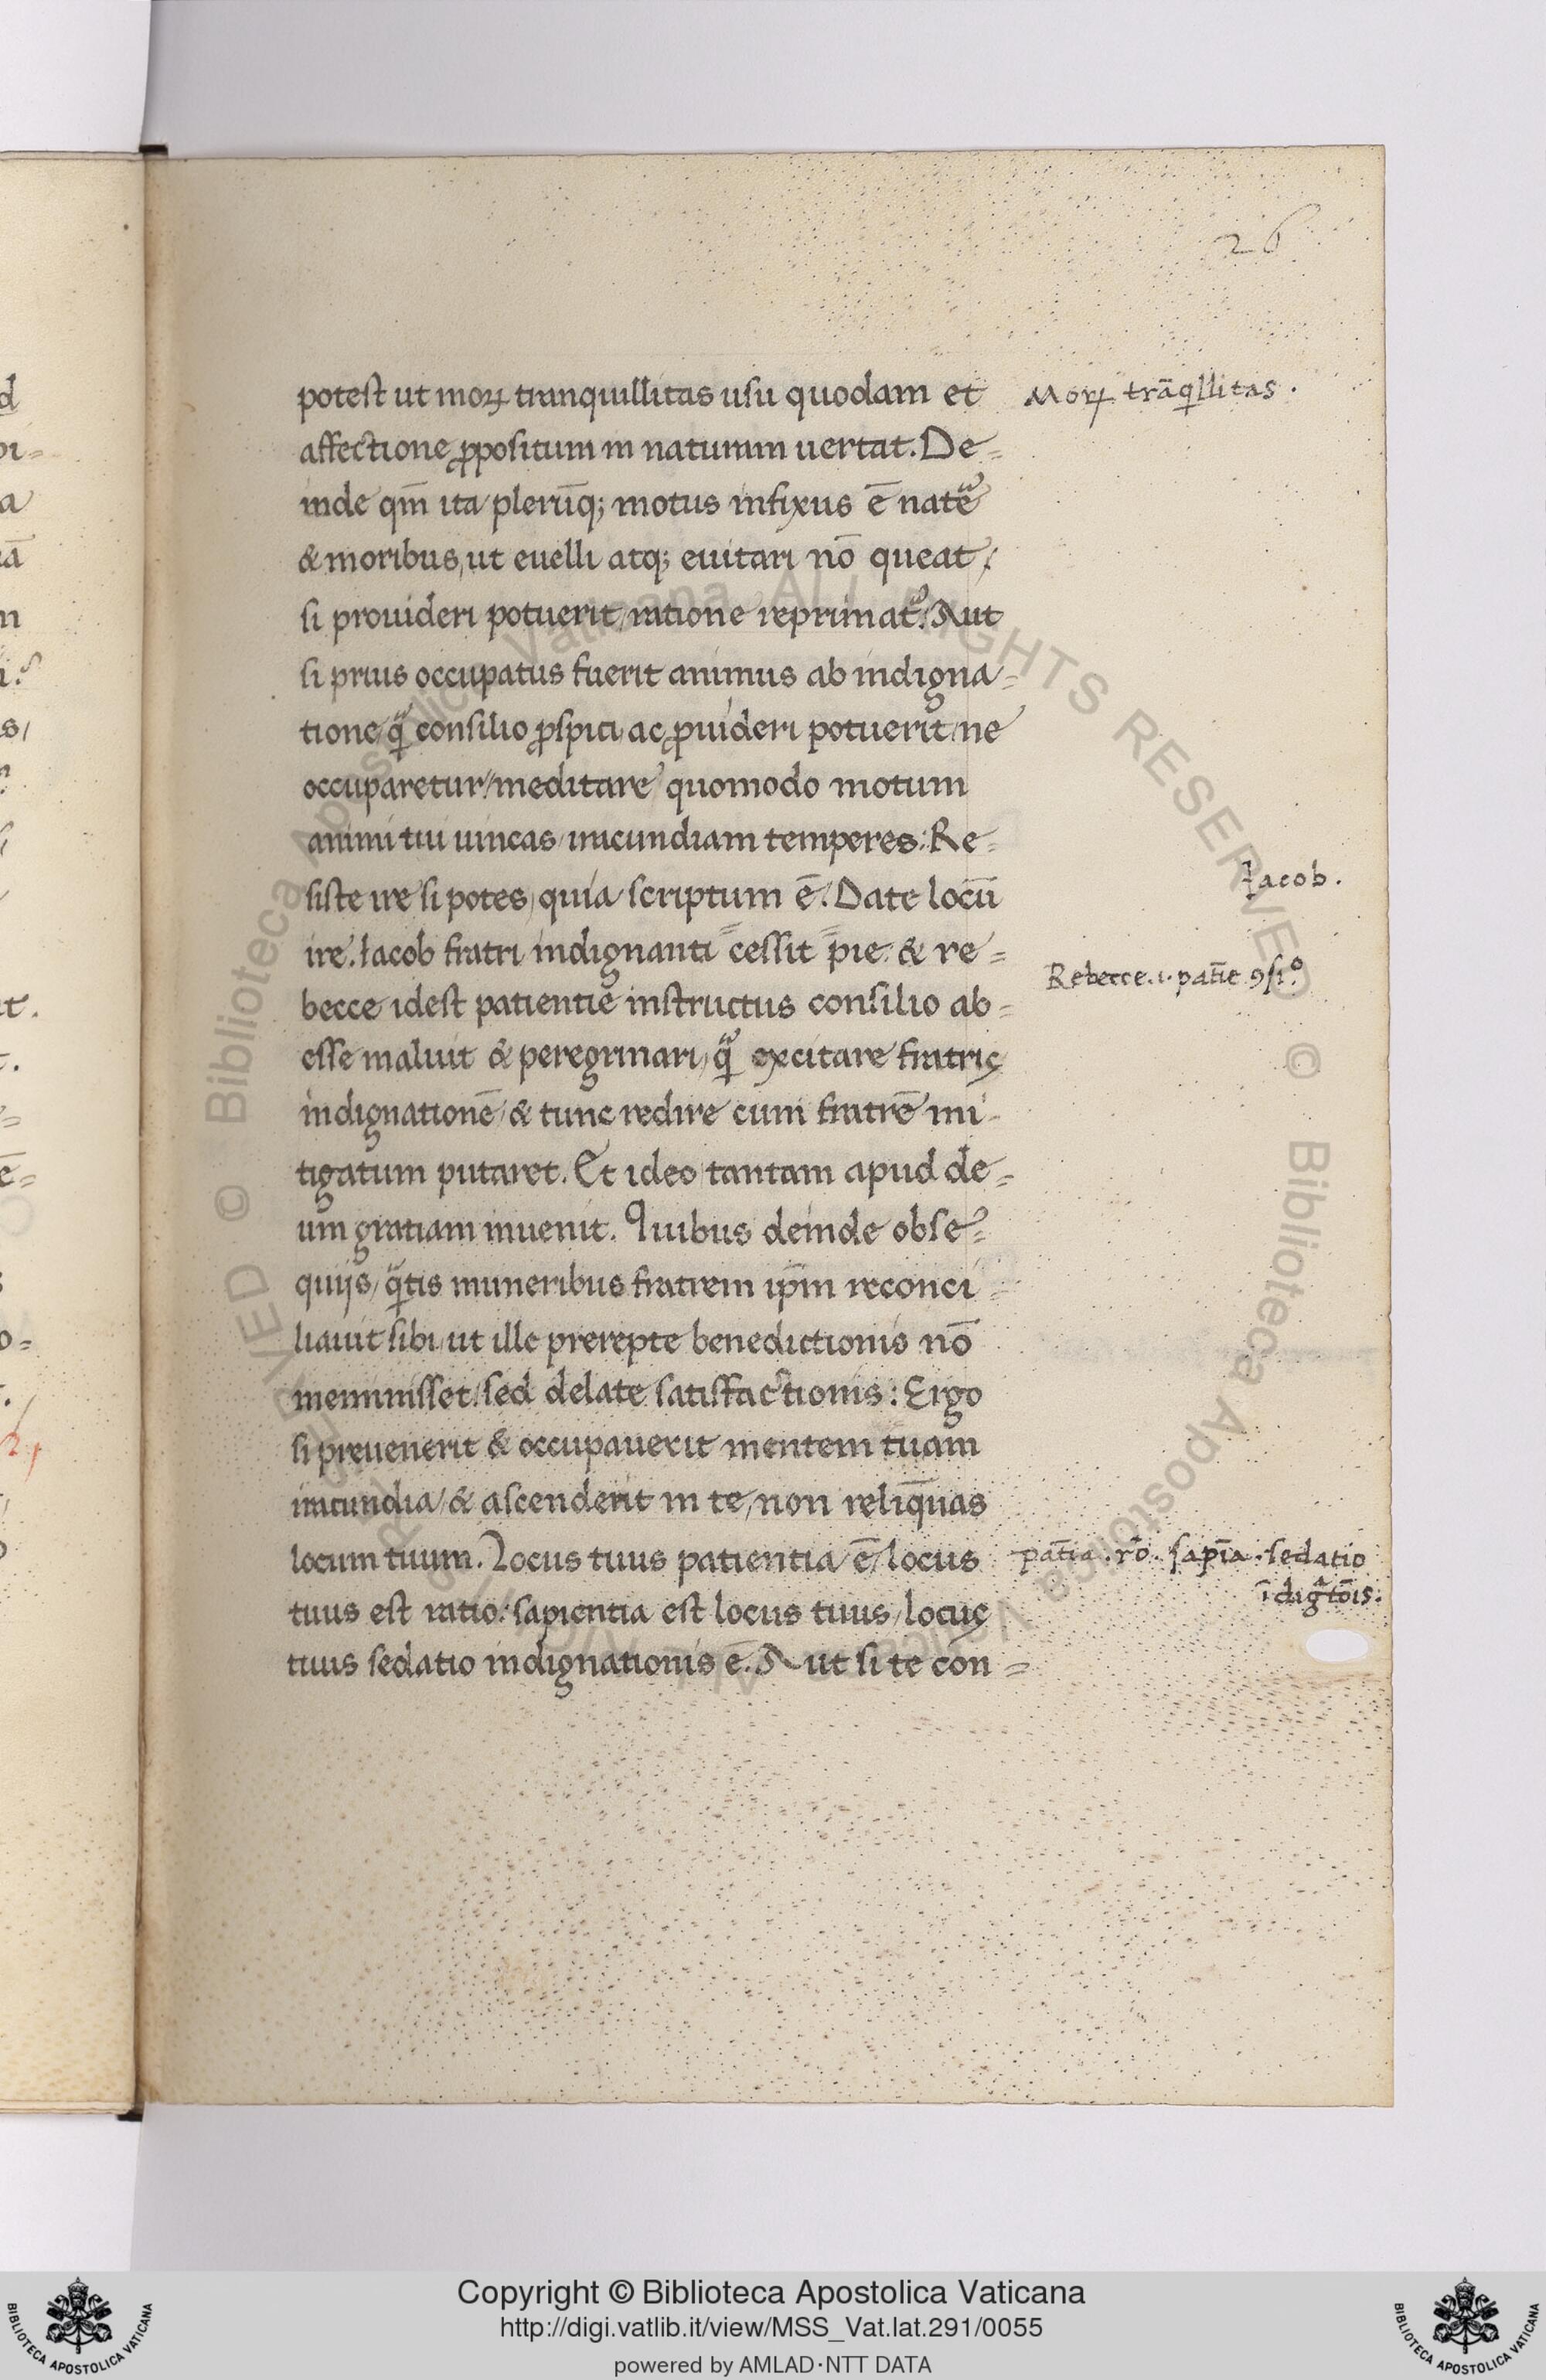 26
potest ut moꝝ tranquillitas usu quodam et
Moꝝ trāq̇llitas.
affectione ꝓpositum in naturam uertat. De=
inde qm̄ ita plerūq; motus infixus ē natᵃe
& moribus, ut euelli atq; euitari nō queat /
si prouideri potuerit / ratione reprimatᷣ. Aut
si prius occupatus fuerit animus ab indigna=
tione / qᵃ consilio ꝓspici / ac ꝓuideri potuerit / ne
occuparetur / meditare quomodo motum
animi tui uincas / iracundiam temperes: Re=
Iacob.
siste ire si potes, quia scriptum ē. Date locū
ire. Iacob fratri indignanti cessit pie & re=
Rebecce .i. patīe ꝯsiᵒ.
becce idest patientie instructus consilio ab=
esse maluit & peregrinari, qᵃ excitare fratris
indignationē / & tunc redire cum fratrē mi-
tigatum putaret. Et ideo tantam apud de=
um gratiam inuenit. Quibus deinde obse=
quijs / qᵃtis muneribus fratrem ip̄m reconci=
liauit sibi / ut ille prerepte benedictionis nō
meminisset / sed delate satisfactionis: Ergo
si preuenerit & occupauerit mentem tuam
iracundia / & ascenderit in te / non relīquas
locum tuum. Locus tuus patientia ē / locus
patīa. rō. sapīa. sedatio
īdigᵃtōis.
tuus est ratio: sapientia est locus tuus / locus
tuus sedatio indignationis ē. Aut si te con=
Copyright © Biblioteca Apostolica Vaticana
http://digi.vatlib.it/view/MSS_Vat.lat.291/0055
powered by AMLAD·NTT DATA
BIBLIOTECA APOSTOLICA VATICANA
BIBLIOTECA APOSTOLICA VATICANA